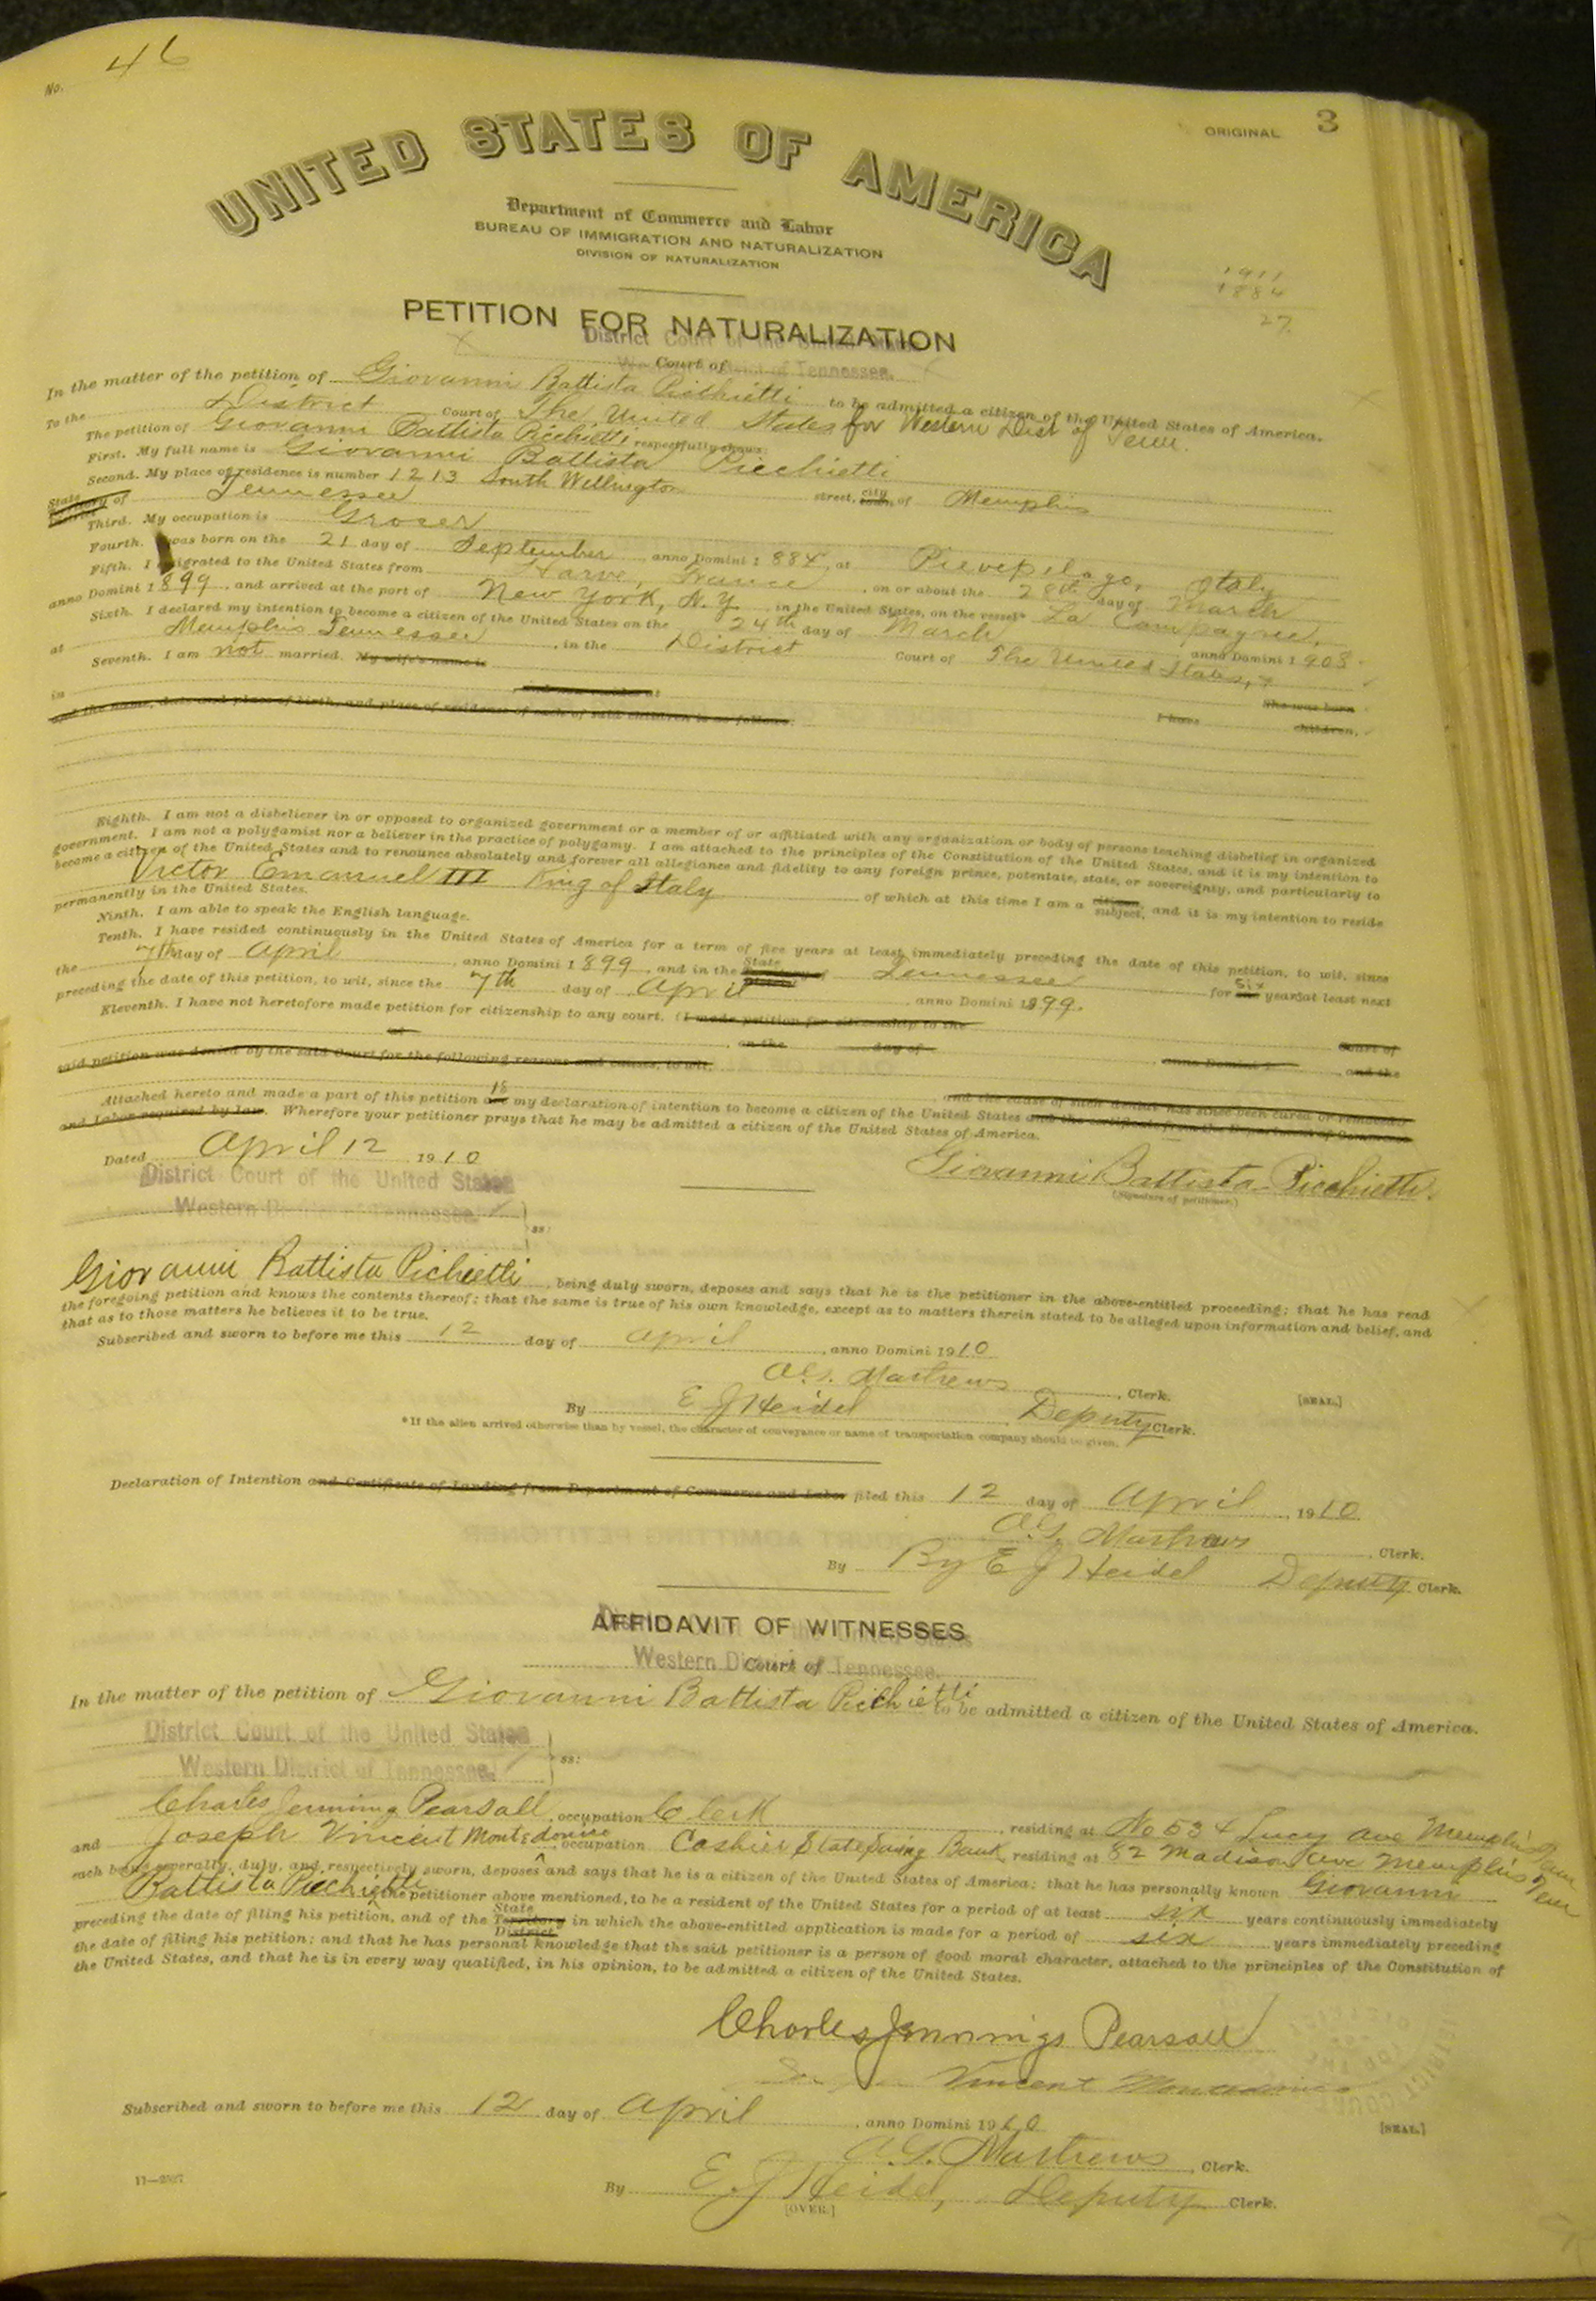 No. 46
ORIGINAL 3
UNITED STATES OF AMERICA
Department of Commerce and Labor
BUREAU OF IMMIGRATION AND NATURALIZATION
DIVISION OF NATURALIZATION
1911
1884
27
PETITION FOR NATURALIZATION
District Court of the United States
Court of
Western District of Tennessee.
In the matter of the petition of Giovanni Battista Picchietti to be admitted a citizen of the United States of America.
To the District Court of The United States for Western Dist of Tenn.
The petition of Giovanni Battista Picchietti respectfully shows:
First. My full name is Giovanni Battista Picchietti
Second. My place of residence is number 1213 South Wellington street, city of Memphis
State of Tennessee
Third. My occupation is Grocer
Fourth. I was born on the 21 day of September anno Domini 1884, at Pievepelago, Italy
Fifth. I emigrated to the United States from Harve, France, on or about the 28th day of March
anno Domini 1899, and arrived at the port of New York, N.Y. in the United States, on the vessel* La Compagnie.
Sixth. I declared my intention to become a citizen of the United States on the 24th day of March anno Domini 1908
at Memphis Tennessee, in the District Court of The United States,
Seventh. I am not married. My wife's name is
in She was born
and the name, date and place of birth, and place of residence of each of said children is as follows: I have children,
Eighth. I am not a disbeliever in or opposed to organized government or a member of or affiliated with any organization or body of persons teaching disbelief in organized
government. I am not a polygamist nor a believer in the practice of polygamy. I am attached to the principles of the Constitution of the United States, and it is my intention to
become a citizen of the United States and to renounce absolutely and forever all allegiance and fidelity to any foreign prince, potentate, state, or sovereignty, and particularly to
Victor Emanuel III King of Italy of which at this time I am a citizen subject, and it is my intention to reside
permanently in the United States.
Ninth. I am able to speak the English language.
Tenth. I have resided continuously in the United States of America for a term of five years at least immediately preceding the date of this petition, to wit, since
the 7th day of April, anno Domini 1899, and in the State of Tennessee for six years at least next
preceding the date of this petition, to wit, since the 7th day of April, anno Domini 1899.
Eleventh. I have not heretofore made petition for citizenship to any court. (I made petition for citizenship to the
Court of
of, on the day of, anno Domini 1, and the
said petition was denied by the said Court for the following reasons and causes, to wit,
and the cause of such denial has since been cured or removed.
Attached hereto and made a part of this petition is my declaration of intention to become a citizen of the United States and the certificate from the Department of Commerce
and Labor required by law. Wherefore your petitioner prays that he may be admitted a citizen of the United States of America.
Dated April 12 1910
Giovanni Battista Picchietti.
(Signature of petitioner.)
District Court of the United States
Western District of Tennessee. ss:
Giovanni Battista Pichietti, being duly sworn, deposes and says that he is the petitioner in the above-entitled proceeding; that he has read
the foregoing petition and knows the contents thereof; that the same is true of his own knowledge, except as to matters therein stated to be alleged upon information and belief, and
that as to those matters he believes it to be true.
Subscribed and sworn to before me this 12 day of April, anno Domini 1910
A.G. Mathews, Clerk. [SEAL.]
By E J Heidel Deputy Clerk.
*If the alien arrived otherwise than by vessel, the character of conveyance or name of transportation company should be given.
Declaration of Intention and Certificate of Landing from Department of Commerce and Labor filed this 12 day of April, 1910
A.G. Mathews, Clerk.
By By E J Heidel Deputy Clerk.
AFFIDAVIT OF WITNESSES
Court of
Western District of Tennessee.
In the matter of the petition of Giovanni Battista Picchietti to be admitted a citizen of the United States of America.
District Court of the United States
Western District of Tennessee. ss:
Charles Jenning Pearsall, occupation Clerk, residing at No 534 Lucy Ave Memphis Tenn
and Joseph Vincent Montedonico occupation Cashier State Saving Bank, residing at 82 Madison Ave Memphis Tenn
each being severally, duly, and respectively sworn, deposes and says that he is a citizen of the United States of America; that he has personally known Giovanni
Battista Picchietti the petitioner above mentioned, to be a resident of the United States for a period of at least six years continuously immediately
preceding the date of filing his petition, and of the State Territory District in which the above-entitled application is made for a period of six years immediately preceding
the date of filing his petition; and that he has personal knowledge that the said petitioner is a person of good moral character, attached to the principles of the Constitution of
the United States, and that he is in every way qualified, in his opinion, to be admitted a citizen of the United States.
Charles Jennings Pearsall
Vincent Montedonico
Subscribed and sworn to before me this 12 day of April, anno Domini 1910 [SEAL.]
A.G. Mathews, Clerk.
By E. J Heidel, Deputy Clerk.
[OVER.]